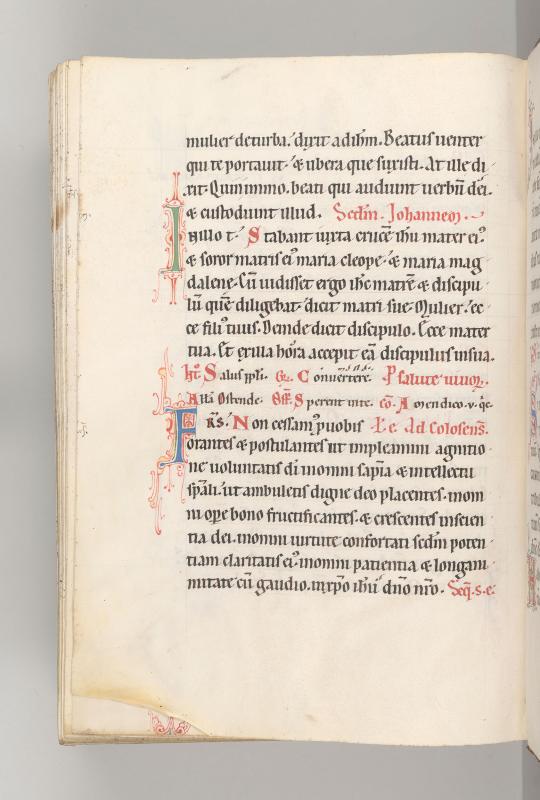 mulier de turba. dixit ad ihm. Beatus uenter
qui te portauit. & ubera que suxisti. At ille di
xit. Quin immo. beati qui audiunt uerbū dei.
& custodiunt illud. Scdm. Johannem.
In illo t. Stabant iuxta crucē ihu mater ei⁹.
& soror matris ei⁹ maria cleope. & maria mag
dalene. Cū uidisset ergo ihc matrē & discipu
lū quē diligebat. dicit matri sue. Mulier. ec
ce fili⁹ tuus. Deinde dicit discipulo. Ecce mater
tua. Et ex illa hora accepit eā discipulus in sua.
Salus ppli. Conuertere. P salute uiuor.
Ostende. Sperent in te. Amen dico. v. qc.
FRS. Non cessam⁹ p uobis Ad Colosens.
orantes & postulantes ut impleamini agnitio
ne uoluntatis di in omni sapia & intellectu
spali. ut ambuletis digne deo placentes. in om
ni ope bono fructificantes. & crescentes in scien
tia dei. in omni uirtute confortati scdm poten
tiam claritatis ei⁹. in omni patientia & longani
mitate cū gaudio. in xpo ihu dno nro. Seq. s. e.